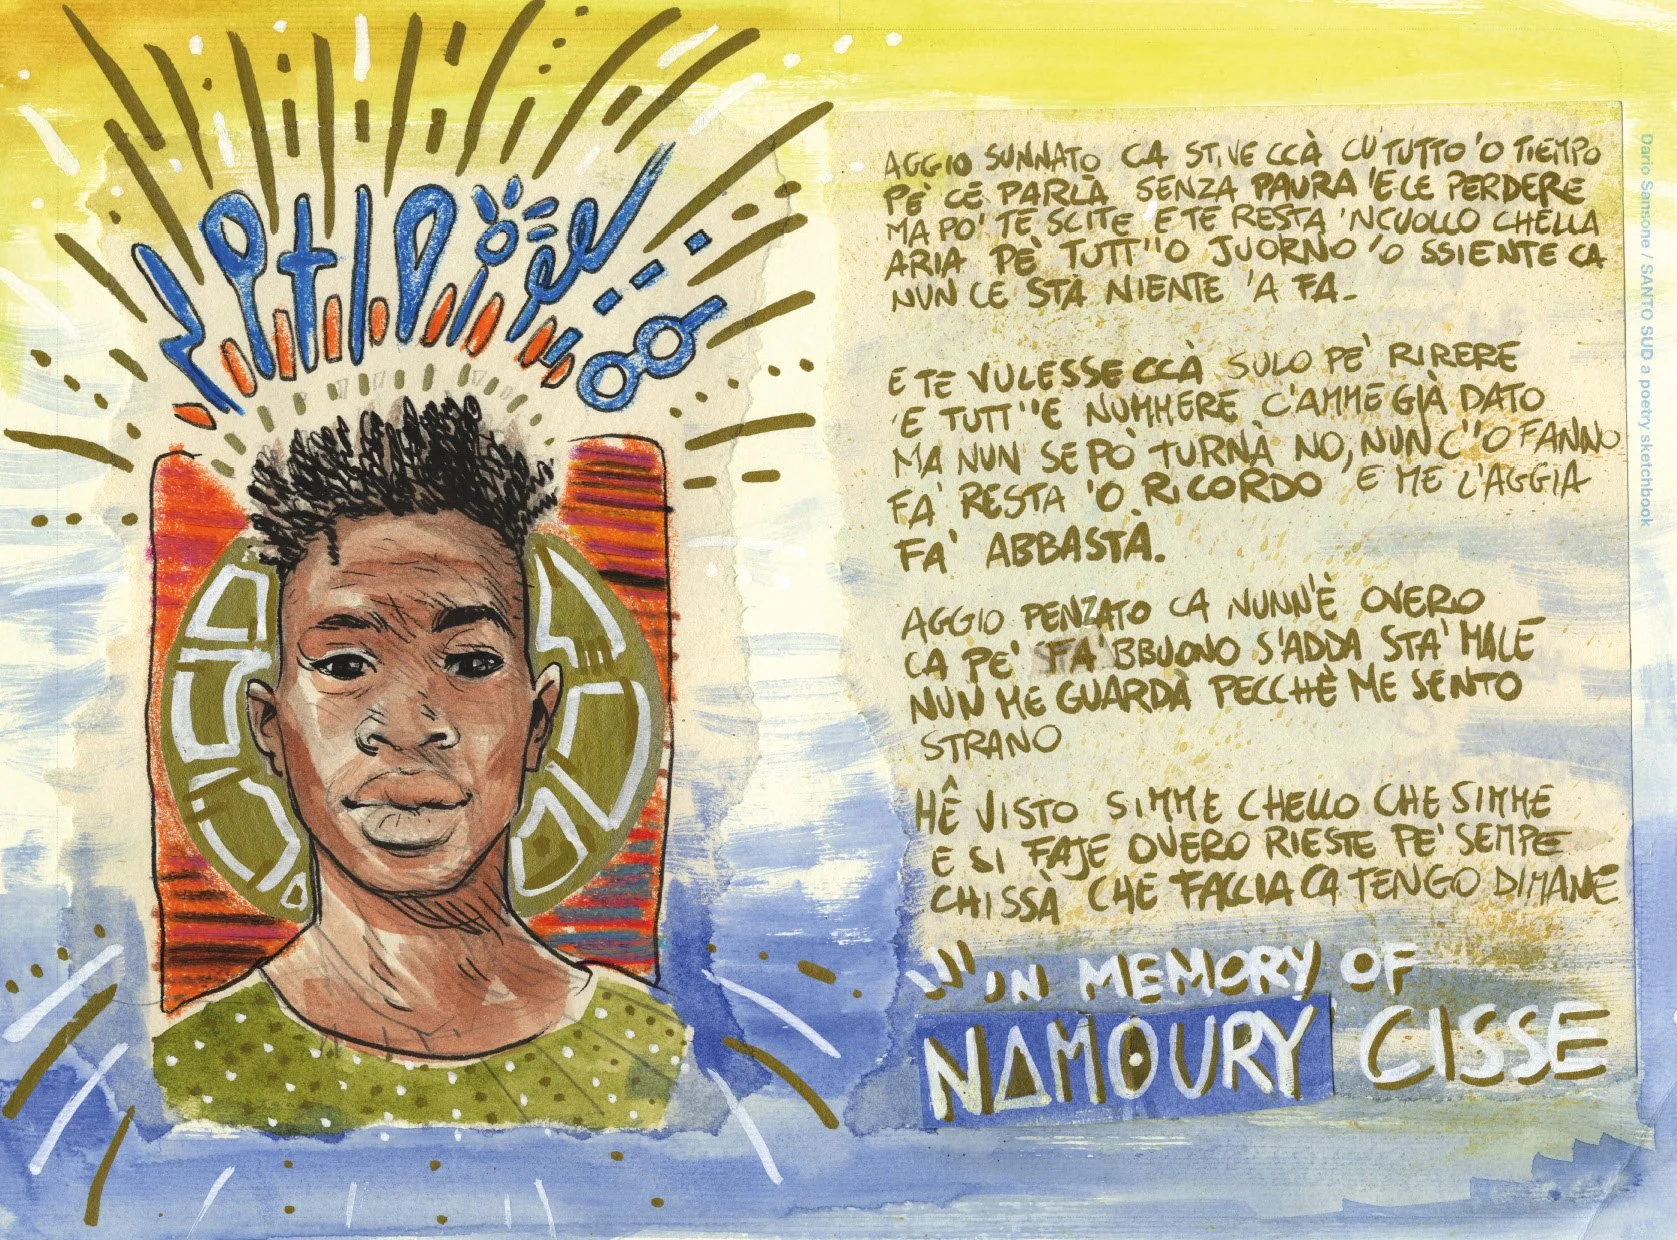 AGGIO SUNNATO CA STIVE CCÀ CU TUTTO 'O TIEMPO
PE' CE PARLÀ SENZA PAURA 'E LE PERDERE
MA PO' TE SCITE E TE RESTA 'NCUOLLO CHELLA
ARIA PE' TUTT''O JUORNO 'O SSIENTE CA
NUN CE STÀ NIENTE 'A FA_
E TE VULESSE CCÀ SULO PE' RIRERE
'E TUTT''E NUMMERE C'AMME GIÀ DATO
MA NUN SE PÒ TURNÀ NO, NUN C''O FANNO
FA' RESTA 'O RICORDO E ME L'AGGIA
FA' ABBASTÀ.
AGGIO PENZATO CA NUNN'È OVERO
CA PE' FA' BBUONO S'ADDA STA' MALE
NUN ME GUARDÀ PECCHÈ ME SENTO
STRANO
HÊ VISTO SIMME CHELLO CHE SIMME
E SI FAJE OVERO RIESTE PE' SEMPE
CHISSÀ CHE FACCIA CA TENGO DIMANE
IN MEMORY OF
NAMOURY CISSE
Dario Sansone / SANTO SUD a poetry sketchbook